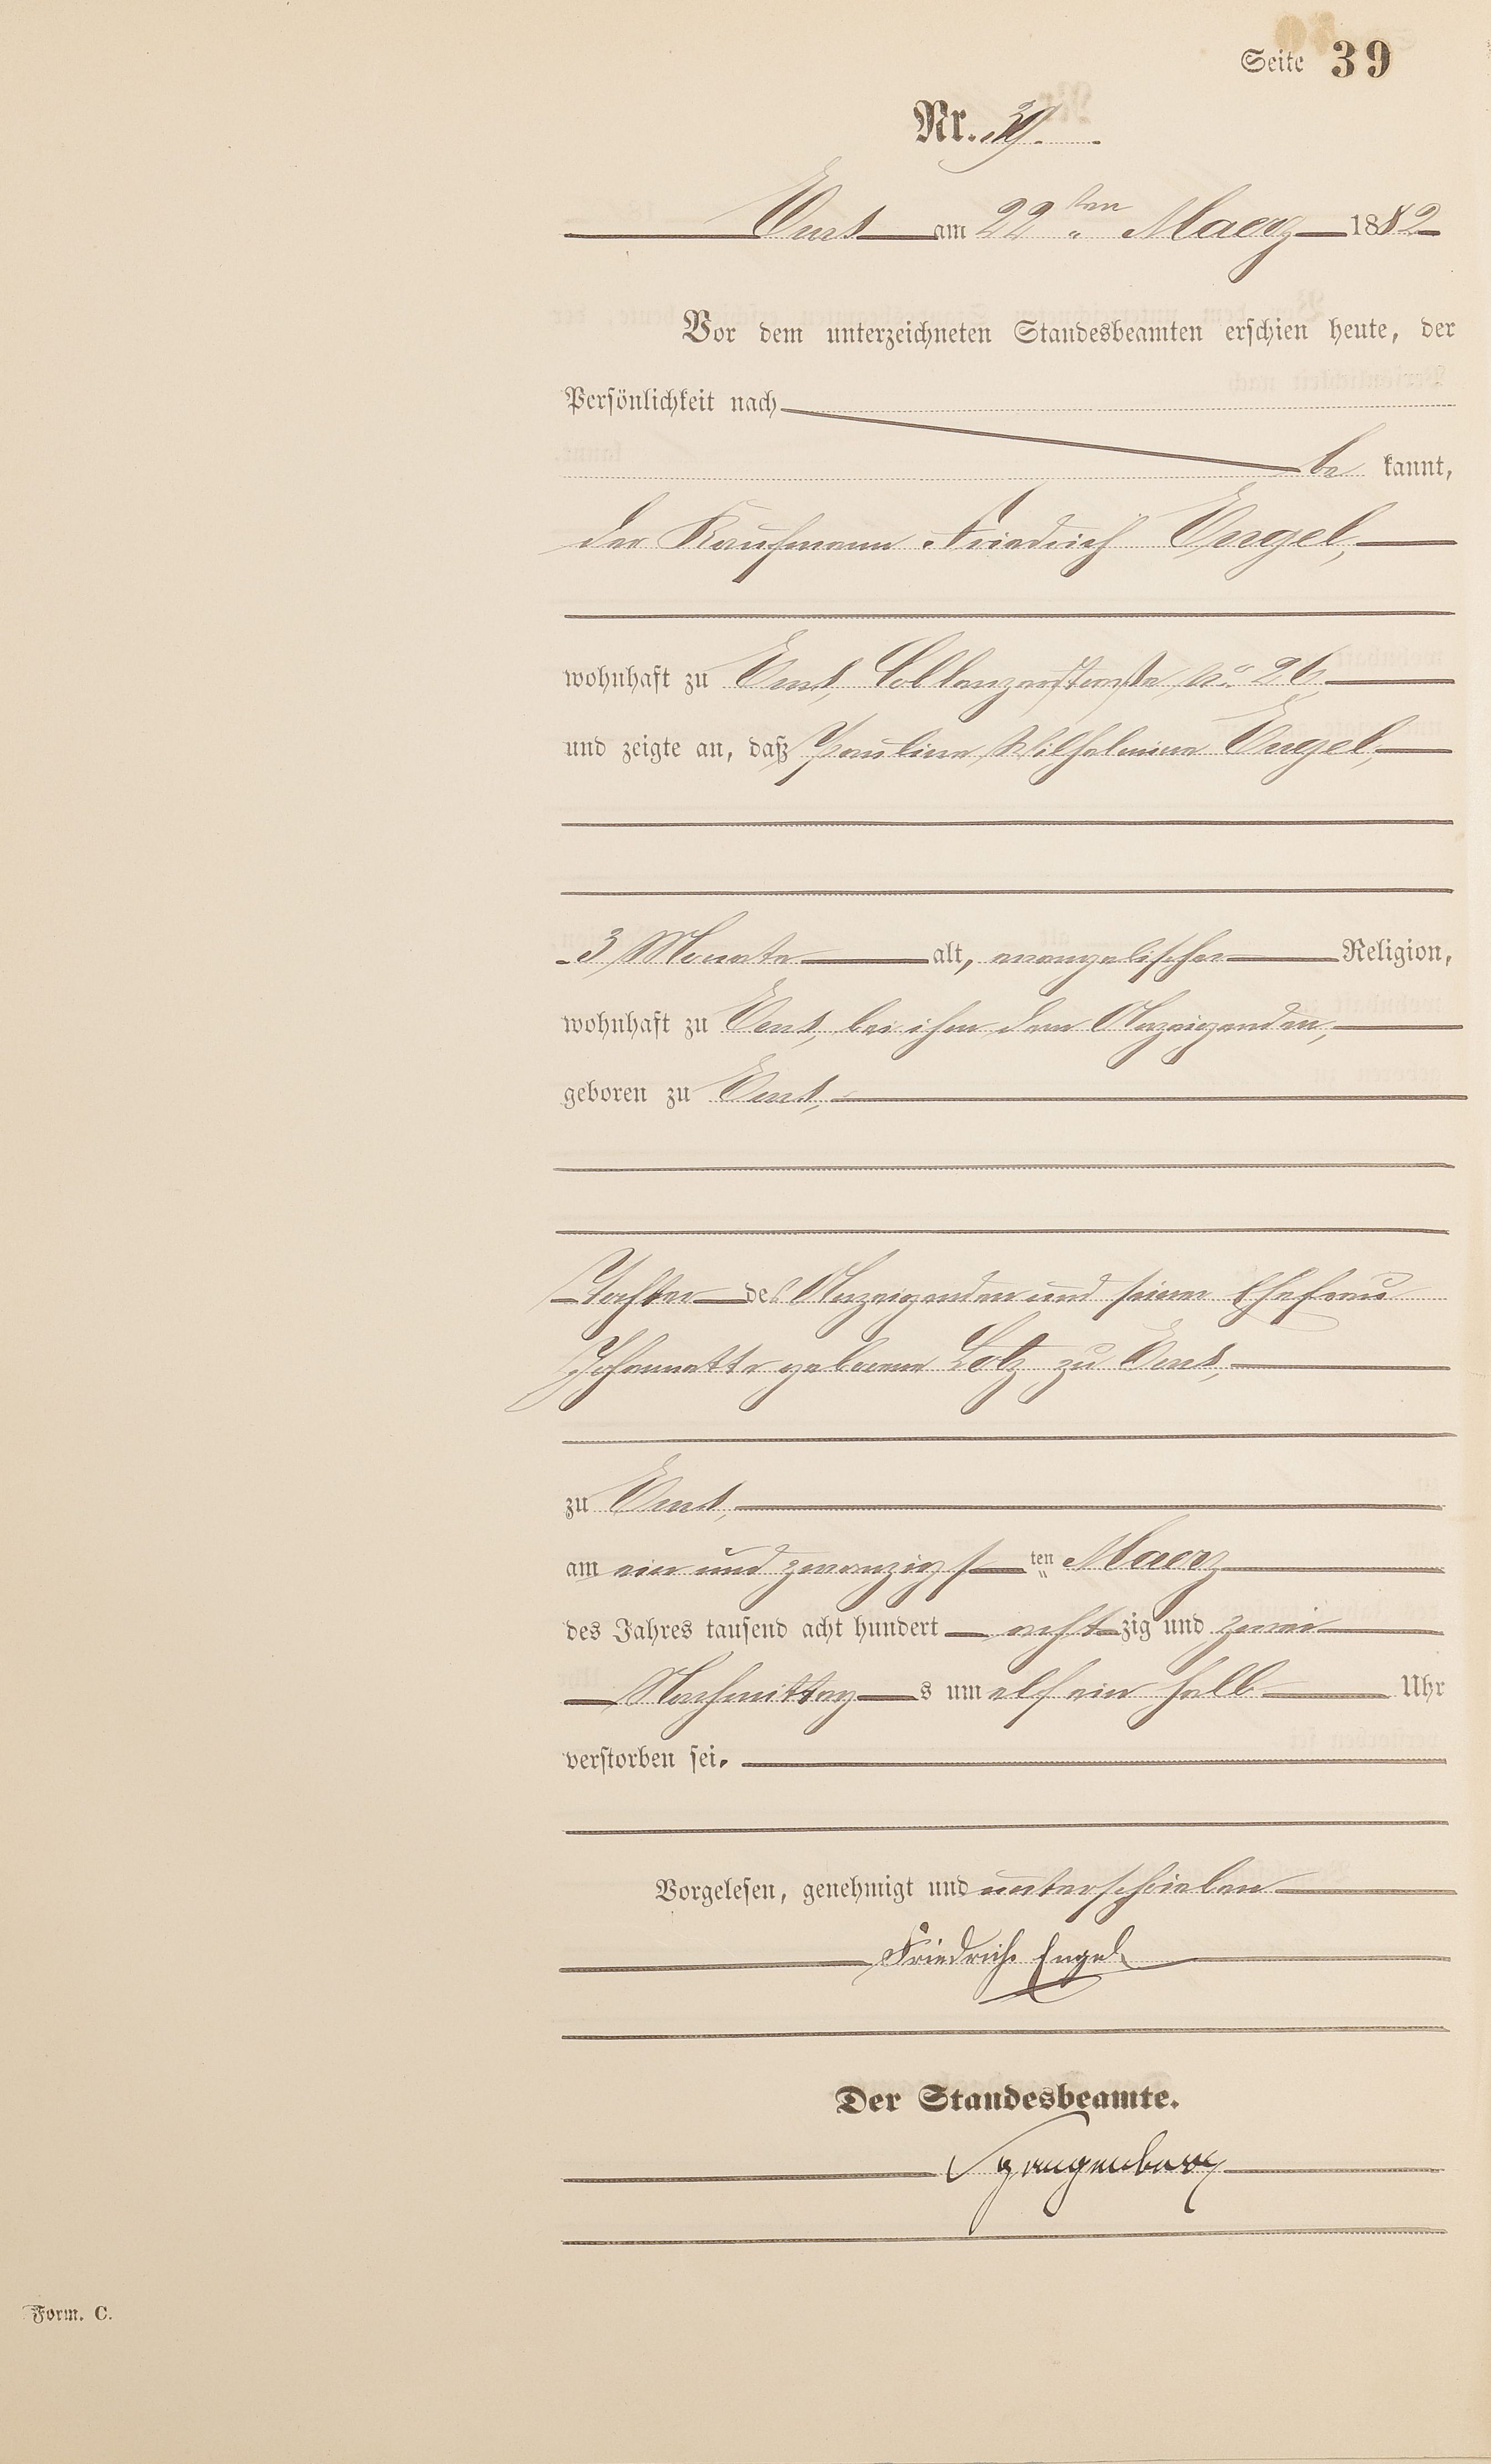 Seite 39
Nr. 39.
Ems am 22ten Maerz 1882
Vor dem unterzeichneten Standesbeamten erschien heute, der
Persönlichkeit nach
be kannt,
der Kaufmann Friedrich Engel,
wohnhaft zu Ems, Coblenzerstraße No 26
und zeigte an, daß Pauline Wilhelmine Engel,
3 Monate alt, evangelischer Religion,
wohnhaft zu Ems, bei ihm dem Anzeigenden,
geboren zu Ems,
Tochter des Anzeigenden und seiner Ehefrau
Johannette geborene Lotz zu Ems,
zu Ems,
am ein und zwanzigsten Maerz
des Jahres tausend acht hundert achtzig und zwei
Nachmittags um elf ein halb Uhr
verstorben sei.
Vorgelesen, genehmigt und unterschrieben
Friedrich Engel
Der Standesbeamte.
Spangenberg
Form. C.